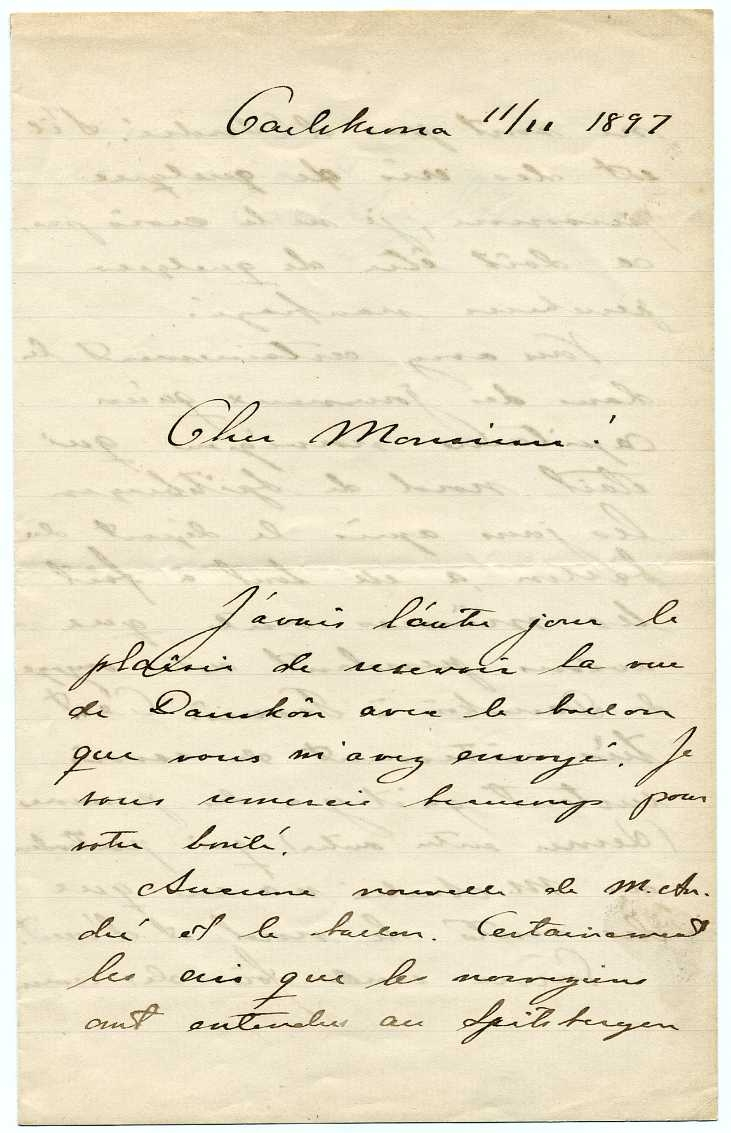 Carlskrona 11/11 1897
Cher Monsieur!
J'avais l'autre jour le
plaisir de resevoir la vue
de Danskön avec le ballon
que vous m'avez envoyé. Je
vous remercie beaucoup pour
votre bonté.
Aucune nouvelle de M. An-
dré et le ballon. Certainement
les cris que les norvegiens
ont entendus au Spitsbergen